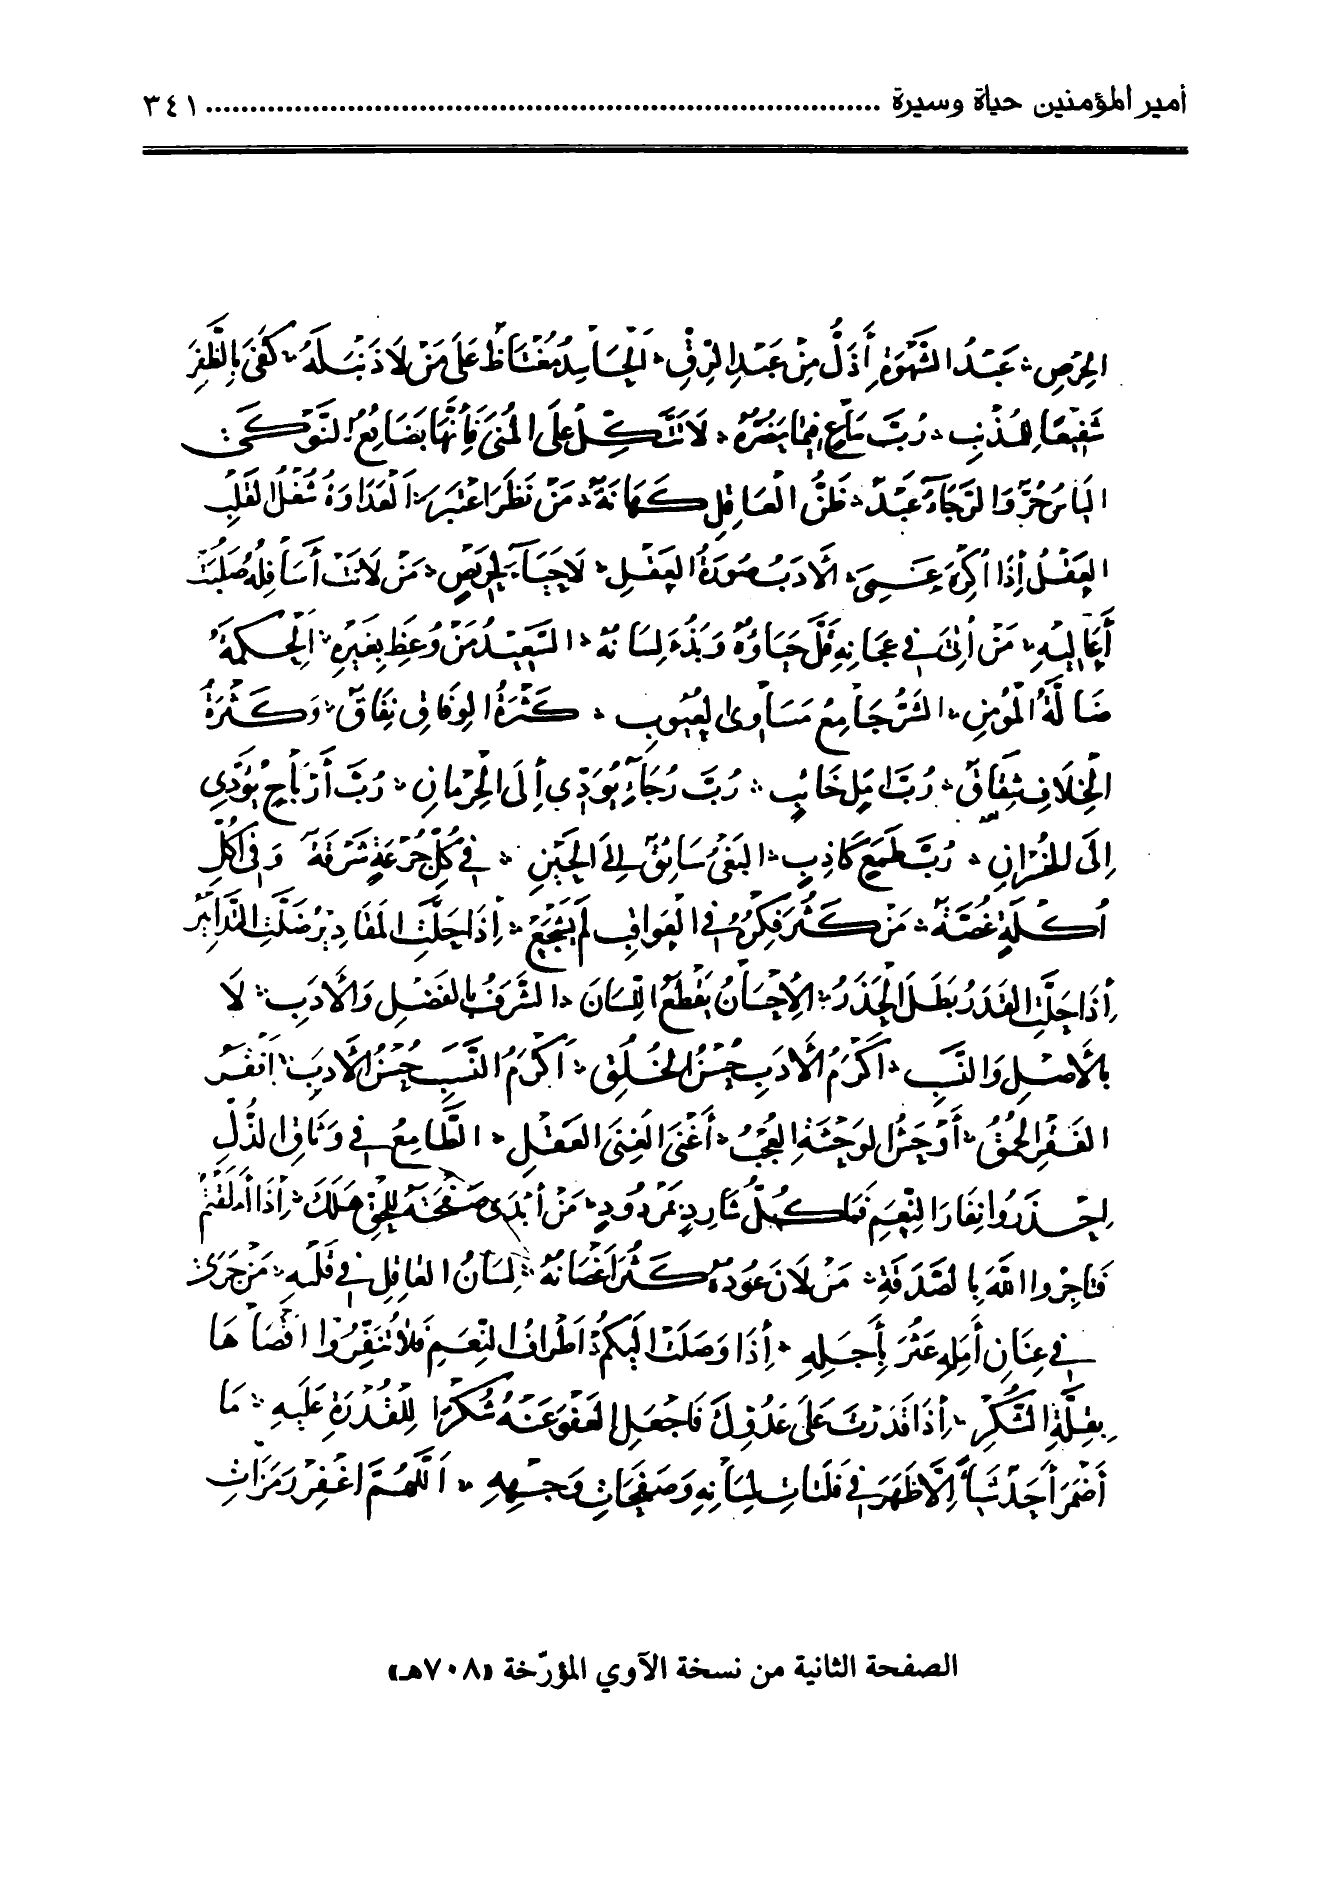 أمير المؤمنين حياة وسيرة ........ ٣٤١
الحِرْصِ عَبْدُ الشَّهْوَةِ أَذَلُّ مِنْ عَبْدِ الرِّقِّ الحَاسِدُ مُغْتَاظٌ عَلَى مَنْ لَا ذَنْبَ لَهُ كَفَى بِالظَّفَرِ
شَفِيعًا لِلْمُذْنِبِ رُبَّ سَاعٍ فِيمَا يَضُرُّهُ لَا تَتَّكِلْ عَلَى المُنَى فَإِنَّهَا بَضَائِعُ النَّوْكَى
اليَأْسُ حُرٌّ وَالرَّجَاءُ عَبْدٌ ظَنُّ العَاقِلِ كَهَانَةٌ مَنْ نَظَرَ اعْتَبَرَ العَدَاوَةُ شُغْلُ القَلْبِ
القَلْبُ إِذَا أُكْرِهَ عَمِيَ الأَدَبُ صُورَةُ العَقْلِ لَا حَيَاءَ لِحَرِيصٍ مَنْ لَانَتْ أَسَافِلُهُ صَلُبَتْ
أَعَالِيهِ مَنْ أُتِيَ فِي عِجَانِهِ قَلَّ حَيَاؤُهُ وَبَذُءَ لِسَانُهُ السَّعِيدُ مَنْ وُعِظَ بِغَيْرِهِ الحِكْمَةُ
ضَالَّةُ المُؤْمِنِ الشَّرُّ جَامِعُ مَسَاوِئِ العُيُوبِ كَثْرَةُ الوِفَاقِ نِفَاقٌ وَكَثْرَةُ
الخِلَافِ شِقَاقٌ رُبَّ آمِلٍ خَائِبٍ رُبَّ رَجَاءٍ يُؤَدِّي إِلَى الحِرْمَانِ رُبَّ أَرْبَاحٍ يُؤَدِّي
إِلَى الخُسْرَانِ رُبَّ طَمَعٍ كَاذِبٍ البَغْيُ سَائِقٌ إِلَى الحَيْنِ فِي كُلِّ جُرْعَةٍ شَرْقَةٌ وَفِي كُلِّ
أُكْلَةٍ غُصَّةٌ مَنْ كَثُرَ فِكْرُهُ فِي العَوَاقِبِ لَمْ يَشْجُعْ إِذَا حَلَّتِ المَقَادِيرُ ضَلَّتِ التَّدَابِيرُ
إِذَا حَلَّ القَدَرُ بَطَلَ الحَذَرُ الإِحْسَانُ يَقْطَعُ اللِّسَانَ الشَّرَفُ بِالفَضْلِ وَالأَدَبِ لَا
بِالأَصْلِ وَالنَّسَبِ أَكْرَمُ الأَدَبِ حُسْنُ الخُلُقِ أَكْرَمُ النَّسَبِ حُسْنُ الأَدَبِ أَفْقَرُ
الفَقْرِ الحُمْقُ أَوْحَشُ الوَحْشَةِ العُجْبُ أَغْنَى الغِنَى العَقْلُ الطَّامِعُ فِي وَثَاقِ الذُّلِّ
احْذَرُوا نِفَارَ النِّعَمِ فَمَا كُلُّ شَارِدٍ بِمَرْدُودٍ مَنْ أَبْدَى صَفْحَتَهُ لِلْحَقِّ هَلَكَ إِذَا أَمْلَقْتُمْ
فَتَاجِرُوا اللهَ بِالصَّدَقَةِ مَنْ لَانَ عُودُهُ كَثُرَ أَغْصَانُهُ لِسَانُ العَاقِلِ فِي قَلْبِهِ مَنْ جَرَى
فِي عِنَانِ أَمَلِهِ عَثَرَ بِأَجَلِهِ إِذَا وَصَلَتْ إِلَيْكُمْ أَطْرَافُ النِّعَمِ فَلَا تُنَفِّرُوا أَقْصَاهَا
بِقِلَّةِ الشُّكْرِ إِذَا قَدَرْتَ عَلَى عَدُوِّكَ فَاجْعَلِ العَفْوَ عَنْهُ شُكْرًا لِلْقُدْرَةِ عَلَيْهِ مَا
أَضْمَرَ أَحَدٌ شَيْئًا إِلَّا ظَهَرَ فِي فَلَتَاتِ لِسَانِهِ وَصَفَحَاتِ وَجْهِهِ اللّٰهُمَّ اغْفِرْ رَمَزَاتِ
الصفحة الثانية من نسخة الآوي المؤرّخة «٧٠٨هـ»